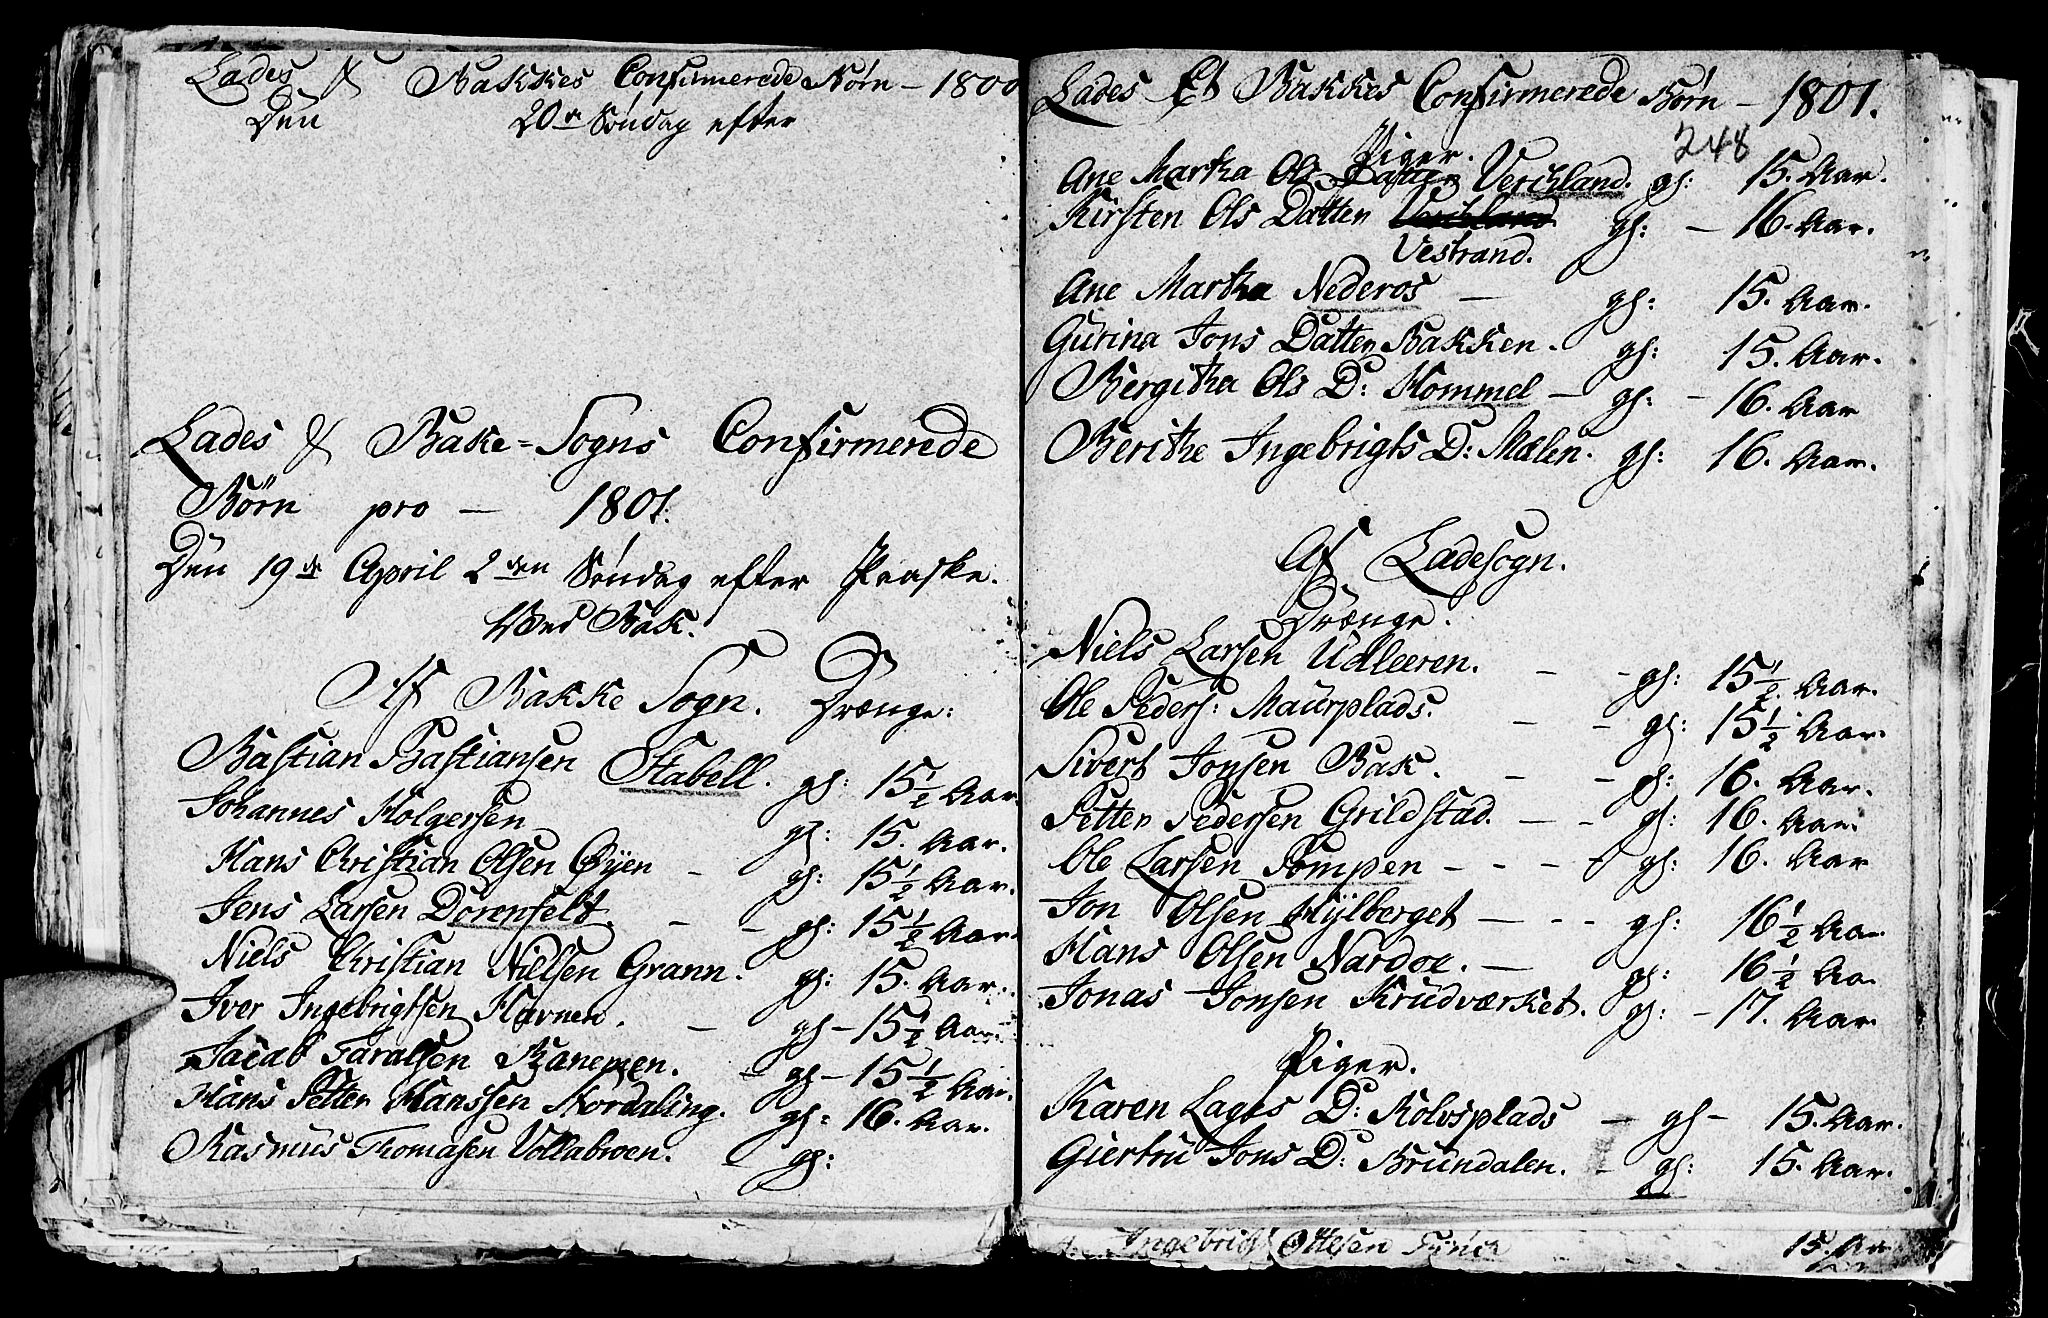 Lades & Bakkes Confirmerede Børn – 1800
Den 20de Søndag efter
Lades & Bake-Sogns Confirmerede
Børn pro – 1801.
Den 19de April 2den Søndag efter Paaske.
Ved Bak.
Af Bakke Sogn. Drænge:
Bastian Bastiansen Stabell. gl: 15½ Aar.
Johannes Holgersen gl: 15. Aar.
Hans Christian Olsen Øyen – gl: 15½ Aar.
Jens Larsen Dorenfelt. – – gl: 15½ Aar.
Niels Christian Nielsen Grann. gl: 15. Aar.
Iver Ingebrigtsen Havnen. – gl – 15½ Aar.
Jacob Taralsen Ranemen. – gl – 15½ Aar.
Hans Petter Hanssen Kordaling. gl: 16. Aar.
Rasmus Thomasen Vollabroen. – gl:
Lades Et Bakkes Confirmerede Børn – 1801.
248
Piger.
Ane Martha Ols Datter Verchland. gl: 15. Aar.
Kirsten Ols Datter gl: – 16. Aar.
Vestrand.
Ane Martha Nederos – gl: 15. Aar.
Gurina Jons Datter Bakken. gl: 15. Aar.
Bergitha Ols D: Hommel – gl: – 16. Aar
Berithe Ingebrigts D: Mælen. gl: 16. Aar.
Af Ladesogn.
Drænge.
Niels Larsen Udleeren. – – gl: 15½. Aar.
Ole Peders: Maurplads. – – gl: 15½ Aar.
Sivert Jonsen Bak. – – gl: 16. Aar.
Petter Pedersen Grildstad. – – gl: 16. Aar.
Ole Larsen Pompen – – – – gl: 16. Aar
Jon Olsen Hylberget – – – gl: 16½ Aa
Hans Olsen Nardoe. – gl: 16½ Aa
Jonas Jonsen Krudværket. gl: – 17. Aar.
Piger.
Karen Lages D: Kolvsplads – gl – 15. Aar.
Giertru Jons D: Brundalen. – gl: 15. Aar.
Ingebrigt Ottesen 15. Aa